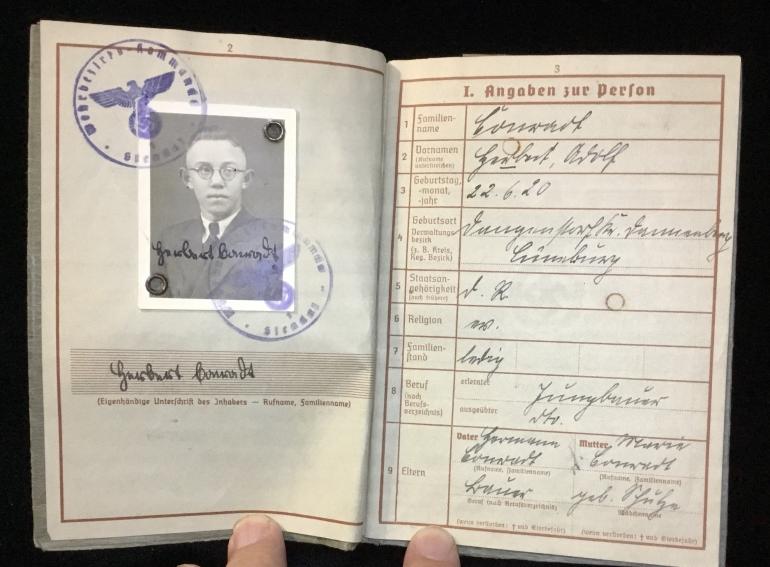 2
Wehrbezirks-Kommando
Stendal
Herbert Conradt
Stendal
Herbert Conradt
(Eigenhändige Unterschrift des Inhabers — Rufname, Familienname)
3
I. Angaben zur Person
1 Familien-
name
Conradt
2 Vornamen
(Rufname
unterstreichen)
Herbert, Adolf
3 Geburtstag,
-monat,
-jahr
22.6.20
4 Geburtsort
Verwaltungs-
bezirk
(z. B. Kreis,
Reg. Bezirk)
Dangenstorf Kr. Dannenberg
Lüneburg
5 Staatsan-
gehörigkeit
(auch frühere)
d. R.
6 Religion
ev.
7 Familien-
stand
ledig
8 Beruf
(nach
Berufs-
verzeichnis)
erlernter
Jungbauer
ausgeübter
dto.
9 Eltern
Vater Hermann
Conradt
(Rufname, Familienname)
Bauer
Beruf (nach Berufsverzeichnis)
(wenn verstorben: † und Sterbejahr)
Mutter Marie
Conradt
(Rufname, Familienname)
geb. Schulze
Mädchenname
(wenn verstorben: † und Sterbejahr)